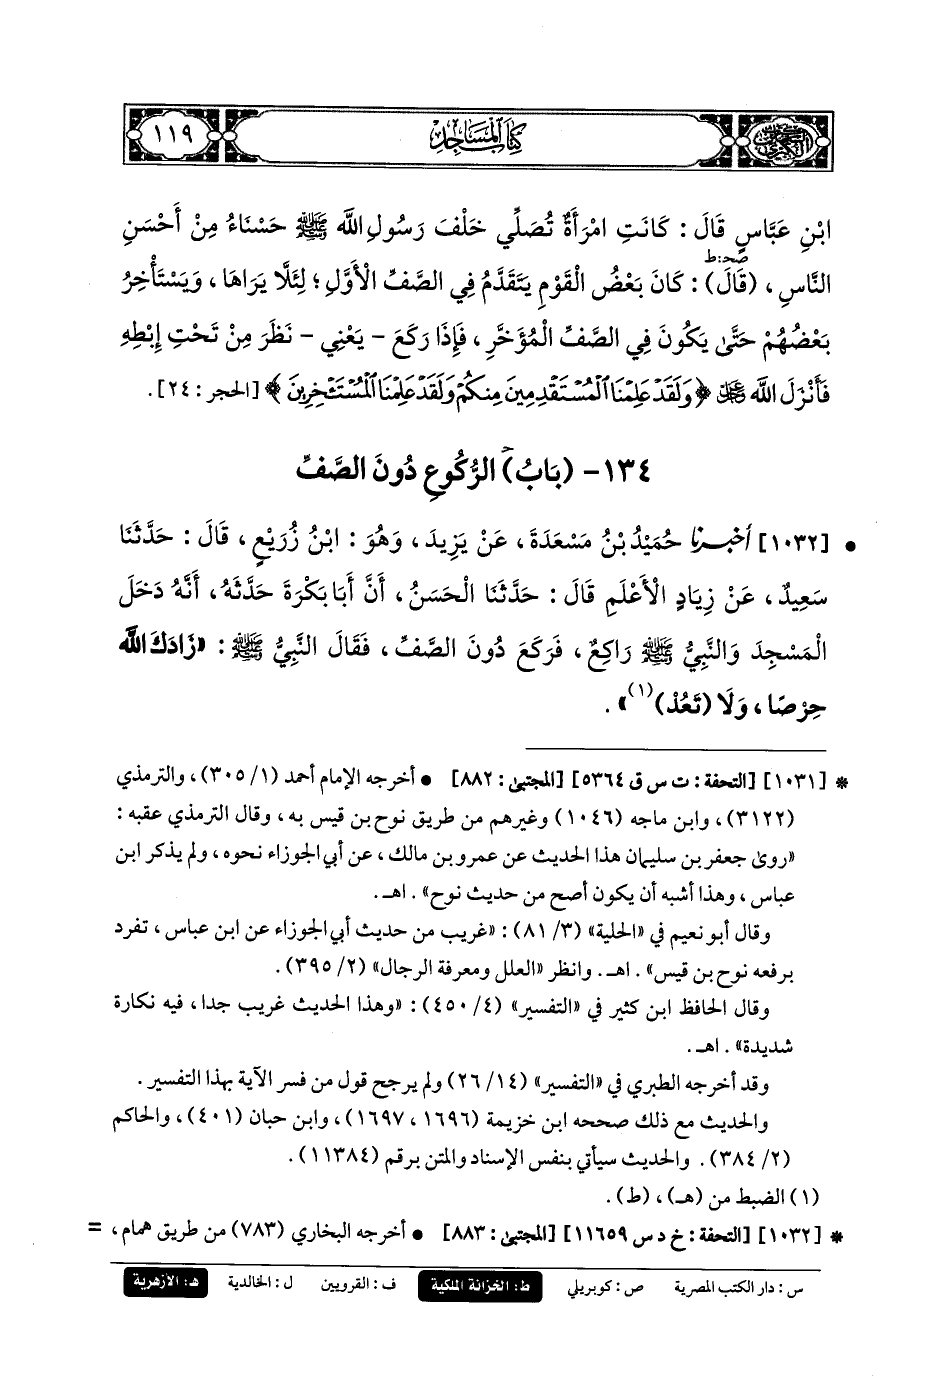 كتاب المساجد
١١٩
ابْنِ عَبَّاسٍ قَالَ : كَانَتِ امْرَأَةٌ تُصَلِّي خَلْفَ رَسُولِ اللَّه ﷺ حَسْنَاءُ مِنْ أَحْسَنِ
النَّاسِ ، (قَالَ) صحـ:ط : كَانَ بَعْضُ الْقَوْمِ يَتَقَدَّمُ فِي الصَّفِّ الْأَوَّلِ ؛ لِئَلَّا يَرَاهَا ، وَيَسْتَأْخِرُ
بَعْضُهُمْ حَتَّى يَكُونَ فِي الصَّفِّ الْمُؤَخَّرِ ، فَإِذَا رَكَعَ - يَعْنِي - نَظَرَ مِنْ تَحْتِ إِبْطِهِ
فَأَنْزَلَ اللَّه ﷻ ﴿وَلَقَدْ عَلِمْنَا الْمُسْتَقْدِمِينَ مِنكُمْ وَلَقَدْ عَلِمْنَا الْمُسْتَـْٔخِرِينَ﴾ [الحجر : ٢٤] .
١٣٤- (بَابُ) ح الرُّكُوعِ دُونَ الصَّفِّ
• [١٠٣٢] أخبرنا حُمَيْدُ بْنُ مَسْعَدَةَ ، عَنْ يَزِيدَ ، وَهُوَ : ابْنُ زُرَيْعٍ ، قَالَ : حَدَّثَنَا
سَعِيدٌ ، عَنْ زِيَادٍ الْأَعْلَمِ قَالَ : حَدَّثَنَا الْحَسَنُ ، أَنَّ أَبَا بَكْرَةَ حَدَّثَهُ ، أَنَّهُ دَخَلَ
الْمَسْجِدَ وَالنَّبِيُّ ﷺ رَاكِعٌ ، فَرَكَعَ دُونَ الصَّفِّ ، فَقَالَ النَّبِيُّ ﷺ : «زَادَكَ اللَّه
حِرْصًا ، وَلَا (تَعُدْ)(١)» .
* [١٠٣١] [التحفة : ت س ق ٥٣٦٤] [المجتبى : ٨٨٢] • أخرجه الإمام أحمد (١/ ٣٠٥) ، والترمذي
(٣١٢٢) ، وابن ماجه (١٠٤٦) وغيرهم من طريق نوح بن قيس به ، وقال الترمذي عقبه :
«روى جعفر بن سليمان هذا الحديث عن عمرو بن مالك ، عن أبي الجوزاء نحوه ، ولم يذكر ابن
عباس ، وهذا أشبه أن يكون أصح من حديث نوح» . اهـ .
وقال أبو نعيم في «الحلية» (٣/ ٨١) : «غريب من حديث أبي الجوزاء عن ابن عباس ، تفرد
برفعه نوح بن قيس» . اهـ . وانظر «العلل ومعرفة الرجال» (٢/ ٣٩٥) .
وقال الحافظ ابن كثير في «التفسير» (٤/ ٤٥٠) : «وهذا الحديث غريب جدا ، فيه نكارة
شديدة» . اهـ .
وقد أخرجه الطبري في «التفسير» (١٤/ ٢٦) ولم يرجح قول من فسر الآية بهذا التفسير .
والحديث مع ذلك صححه ابن خزيمة (١٦٩٦ ، ١٦٩٧) ، وابن حبان (٤٠١) ، والحاكم
(٢/ ٣٨٤) . والحديث سيأتي بنفس الإسناد والمتن برقم (١١٣٨٤) .
(١) الضبط من (هـ) ، (ط) .
* [١٠٣٢] [التحفة : خ د س ١١٦٥٩] [المجتبى : ٨٨٣] • أخرجه البخاري (٧٨٣) من طريق همام ، =
س : دار الكتب المصرية ص : كوبريلي ط : الخزانة الملكية ف : القرويين ل : الخالدية هـ : الأزهرية